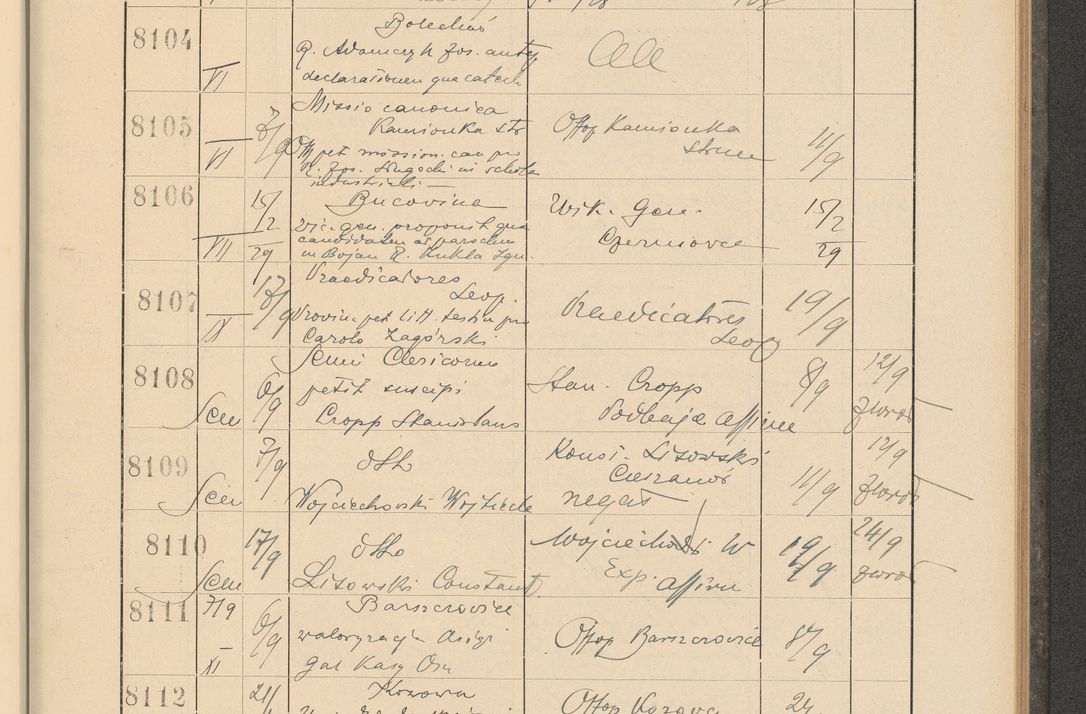 8104
VI
Bolechów
R. Adamczyk Jos.
declarationem qua catech
8105
VI
7/9
Missio canonica
Kamionka str
pet mission. can pro
R. Jos. in schola
industriali
Offop Kamionka
Strum
11/9
8106
VII
15/2
29
Bucovina
Vic. gen. proponit qua
candidatum ad parochiam
in Bojan R. Kukla Ign.
Wik. Gen.
Czerniowce
15/2
29
8107
IX
17/9
Praedicatores
Leop.
Provin. pet litt. testim pro
Carolo Zagórski
Praedicatores
Leop
19/9
8108
Sem
6/9
Sem Clericorum
petit suscipi
Cropp Stanislaus
Stan. Cropp
Podhajce affirm
8/9
12/9
zwrot
8109
Sem
7/9
dtto
Wojciechowski Wojciech
Konst. Lisowski
Cieszanów
negat
11/9
12/9
zwrot
8110
Sem
17/9
dtto
Lisowski Constant
Wojciechowski W
Exp. affirm
19/9
24/9
zwrot
8111
7/9
XI
6/9
Barszczowice
waloryzacja
Gal Kasy Osz
Offop Barszczowice
8/9
8112
21/
Kozowa
Offop Kozowa
24